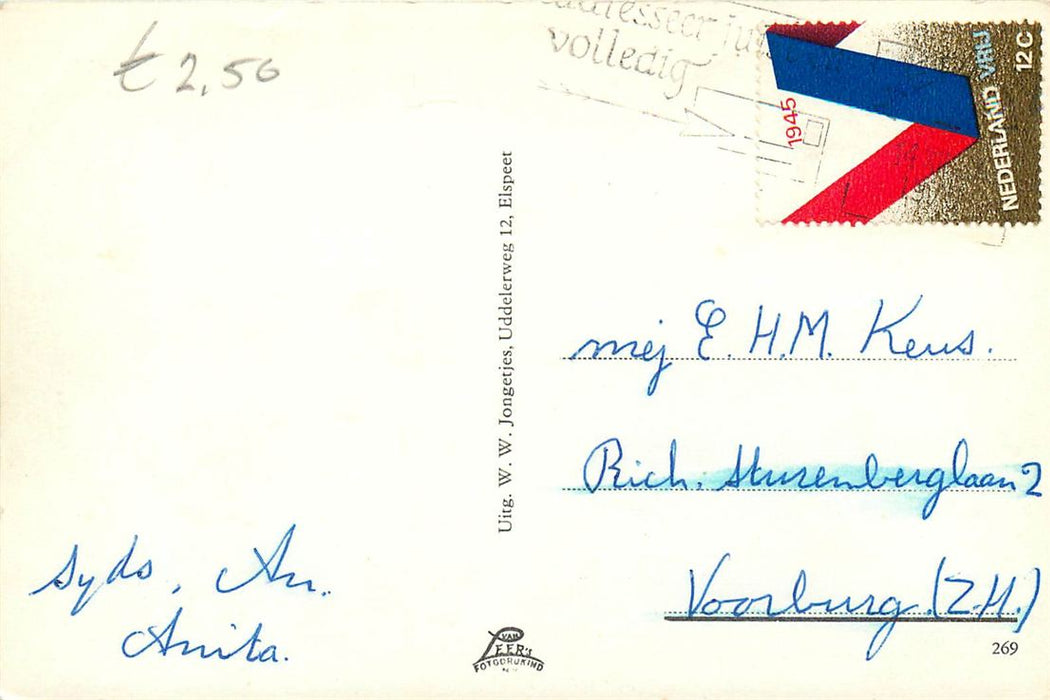 € 2,50
adresseer juist en
volledig
1945
NEDERLAND VRIJ
12 C
Uitg. W. W. Jongetjes, Uddelerweg 12, Elspeet
mej E. H.M. Keus.
Rich. Sturenberglaan 2
Voorburg. (Z.H.)
syds, An.
Anita.
VAN
LEER's
FOTODRUKIND
269